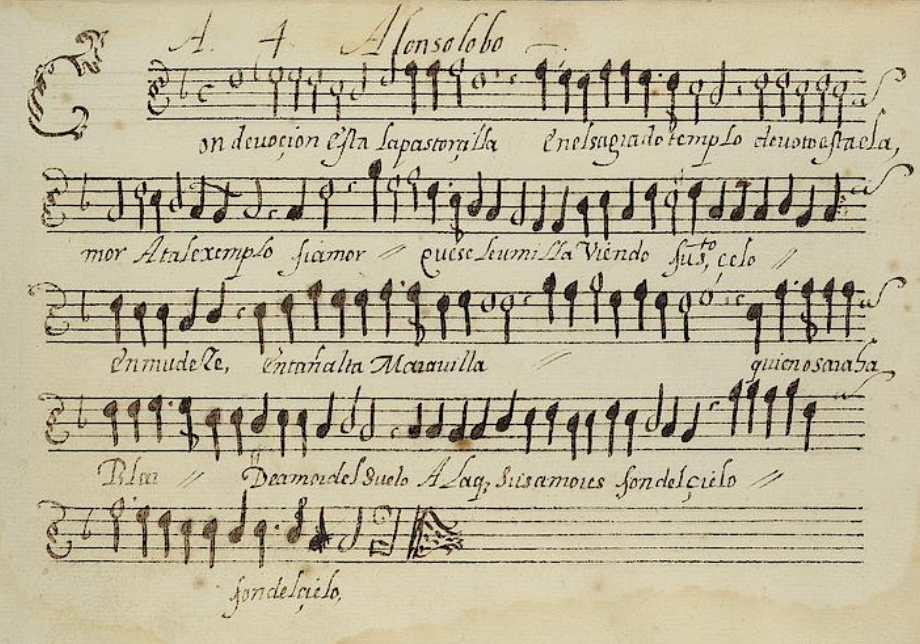 A. 4 Alonso lobo
Con devoçion esta lapastorçilla enelsagrado templo devotoestaela,
mor Atalexemplo siamor quese leumilla Viendo sus.to çelo
enmudeze, entanalta Maravilla quienosaraha
Blar Deamordelsuelo Alaq, susamores sondelçielo
sondelçielo,